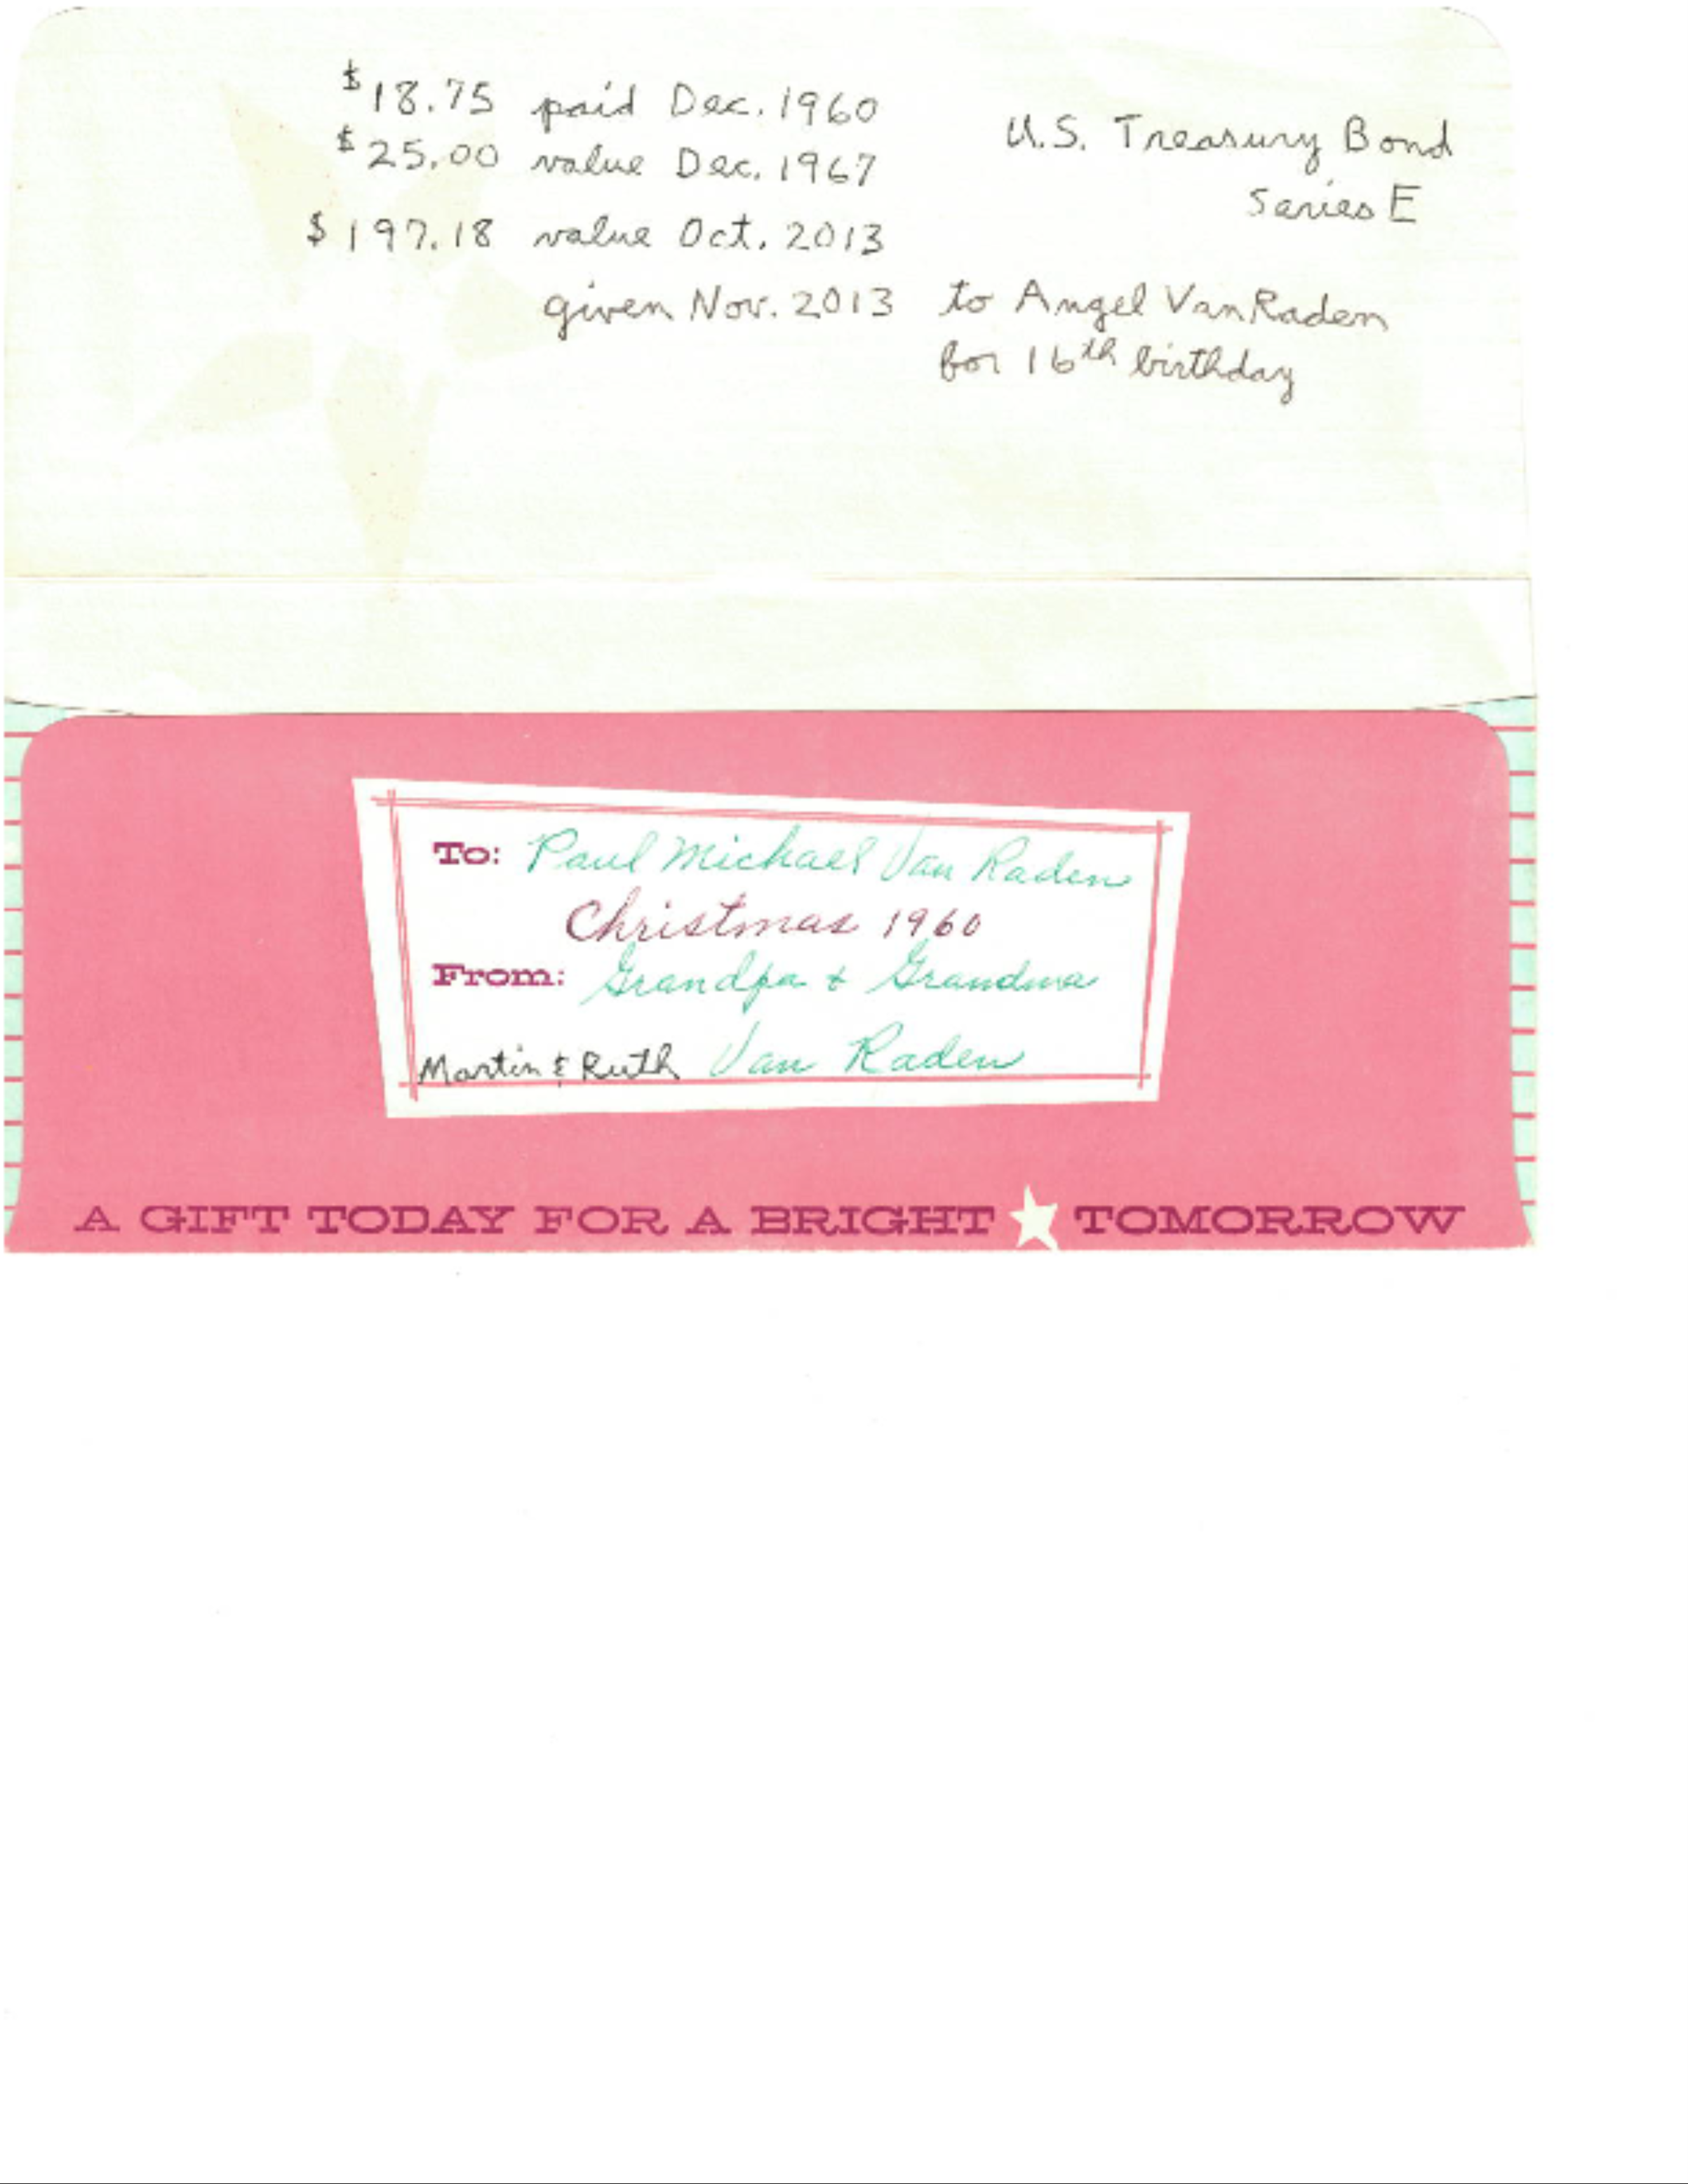 $18.75 paid Dec. 1960
$25.00 value Dec. 1967
$197.18 value Oct. 2013
U.S. Treasury Bond
Series E
given Nov. 2013 to Angel VanRaden
for 16th birthday
To: Paul Michael Van Raden
Christmas 1960
From: Grandpa + Grandma
Martin & Ruth Van Raden
A GIFT TODAY FOR A BRIGHT TOMORROW